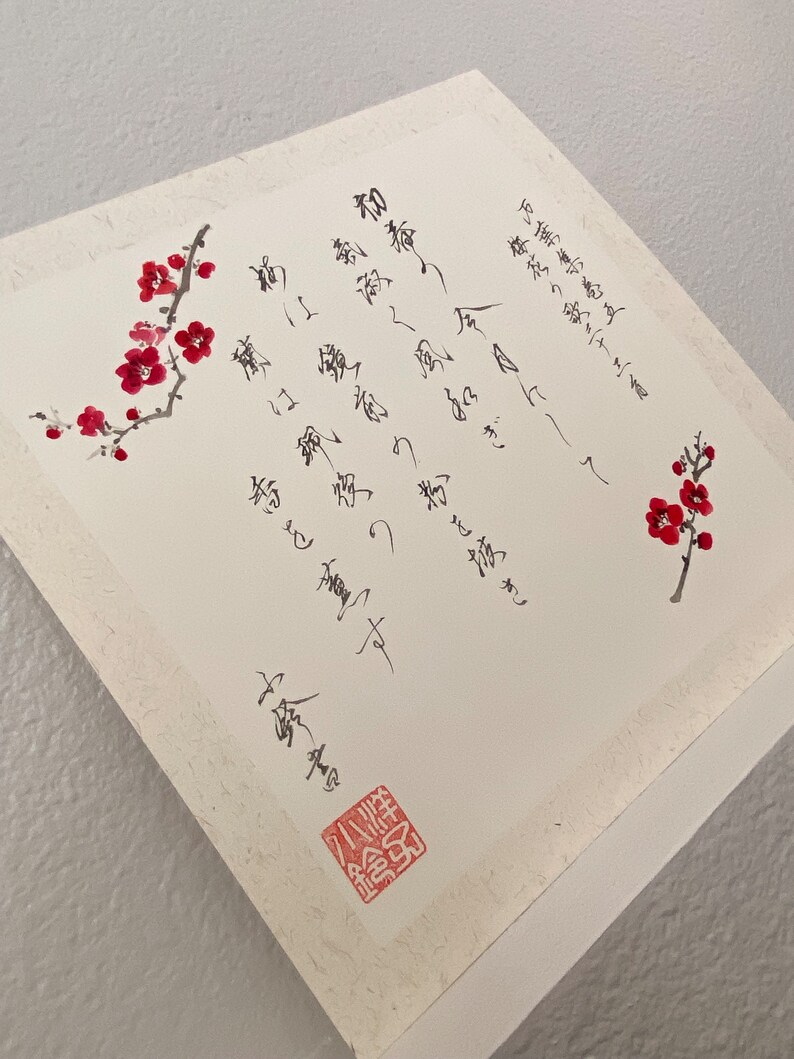 万葉集巻五
梅花の歌三十二首
初春の令月にして
氣淑く風和ぎ
梅は鏡前の粉を披き
蘭は珮後の
香を薫す